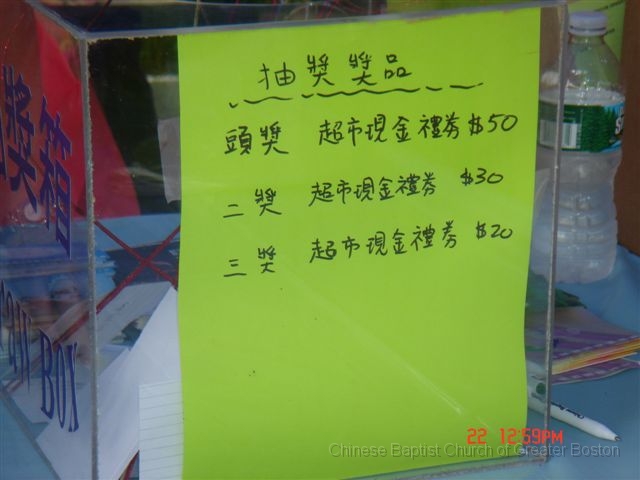 抽獎獎品
頭獎 超市現金禮券 $50
二獎 超市現金禮券 $30
三獎 超市現金禮券 $20
獎箱
BOX
22 12:59PM
Chinese Baptist Church of Greater Boston